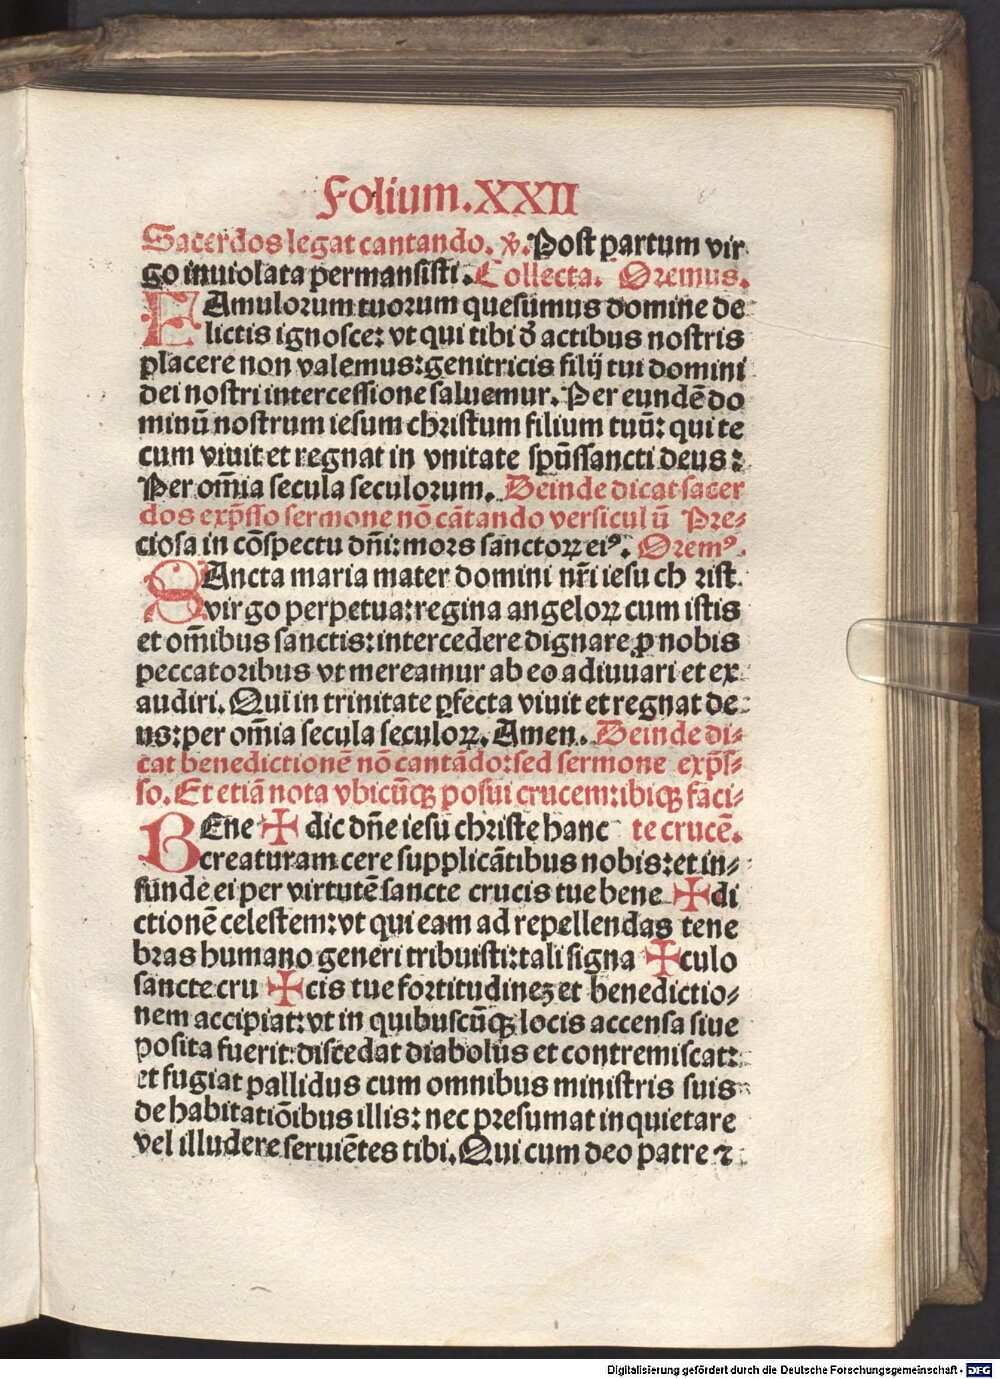 Folium.XXII
Sacerdos legat cantando. v̄. Post partum vir
go inuiolata permansisti. Collecta. Oremus.
FAmulorum tuorum quesumus domine de
lictis ignosce: vt qui tibi d̄ actibus nostris
placere non valemus: genitricis filij tui domini
dei nostri intercessione saluemur. Per eundē do
minū nostrum iesum christum filium tuū: qui te
cum viuit et regnat in vnitate spūssancti deus:
Per om̄ia secula seculorum. Deinde dicat sacer
dos exp̄sso sermone nō cātando versiculū Pre⸗
ciosa in cōspectu dn̄i: mors sanctoꝝ eiꝰ. Oremꝰ.
SAncta maria mater domini nr̄i iesu christ.
virgo perpetua: regina angeloꝝ cum istis
et om̄ibus sanctis: intercedere dignare ꝓ nobis
peccatoribus vt mereamur ab eo adiuuari et ex
audiri. Qui in trinitate ꝑfecta viuit et regnat de
us: per om̄ia secula seculoꝝ. Amen. Deinde di⸗
cat benedictionē nō cantādo: sed sermone exp̄s⸗
so. Et etiā nota vbicūqꝫ posui crucem: ibiqꝫ faci⸗
BEne ✠ dic dn̄e iesu christe hanc te crucē.
creaturam cere supplicātibus nobis: et in⸗
funde ei per virtutē sancte crucis tue bene ✠ di
ctionē celestem: vt qui eam ad repellendas tene
bras humano generi tribuisti: tali signa ✠ culo
sancte cru ✠ cis tue fortitudineꝫ et benedictio⸗
nem accipiat: vt in quibuscūqꝫ locis accensa siue
posita fuerit: discedat diabolus et contremiscat:
et fugiat pallidus cum omnibus ministris suis
de habitatiōibus illis: nec presumat inquietare
vel illudere seruiētes tibi. Qui cum deo patre ⁊
Digitalisierung gefördert durch die Deutsche Forschungsgemeinschaft - DFG